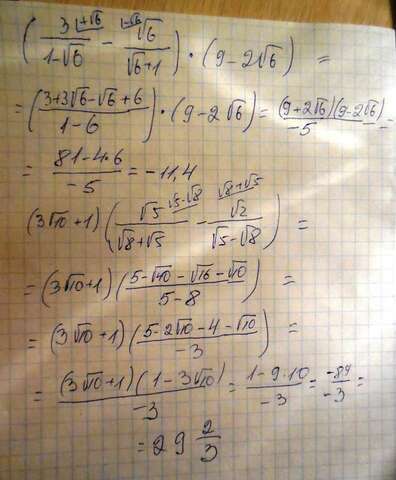 (3^{1+√6}/(1-√6) - √6^{1-√6}/(√6+1)) · (9-2√6) =
= ((3+3√6-√6+6)/(1-6)) · (9-2√6) = (9+2√6)(9-2√6)/(-5) =
= (81-4·6)/(-5) = -11,4
(3√10+1)(√5^{√5-√8}/(√8+√5) - √2^{√8+√5}/(√5-√8)) =
= (3√10+1)((5-√40-√16-√10)/(5-8)) =
= (3√10+1)((5-2√10-4-√10)/(-3)) =
= (3√10+1)(1-3√10)/(-3) = (1-9·10)/(-3) = -89/-3 =
= 29 2/3